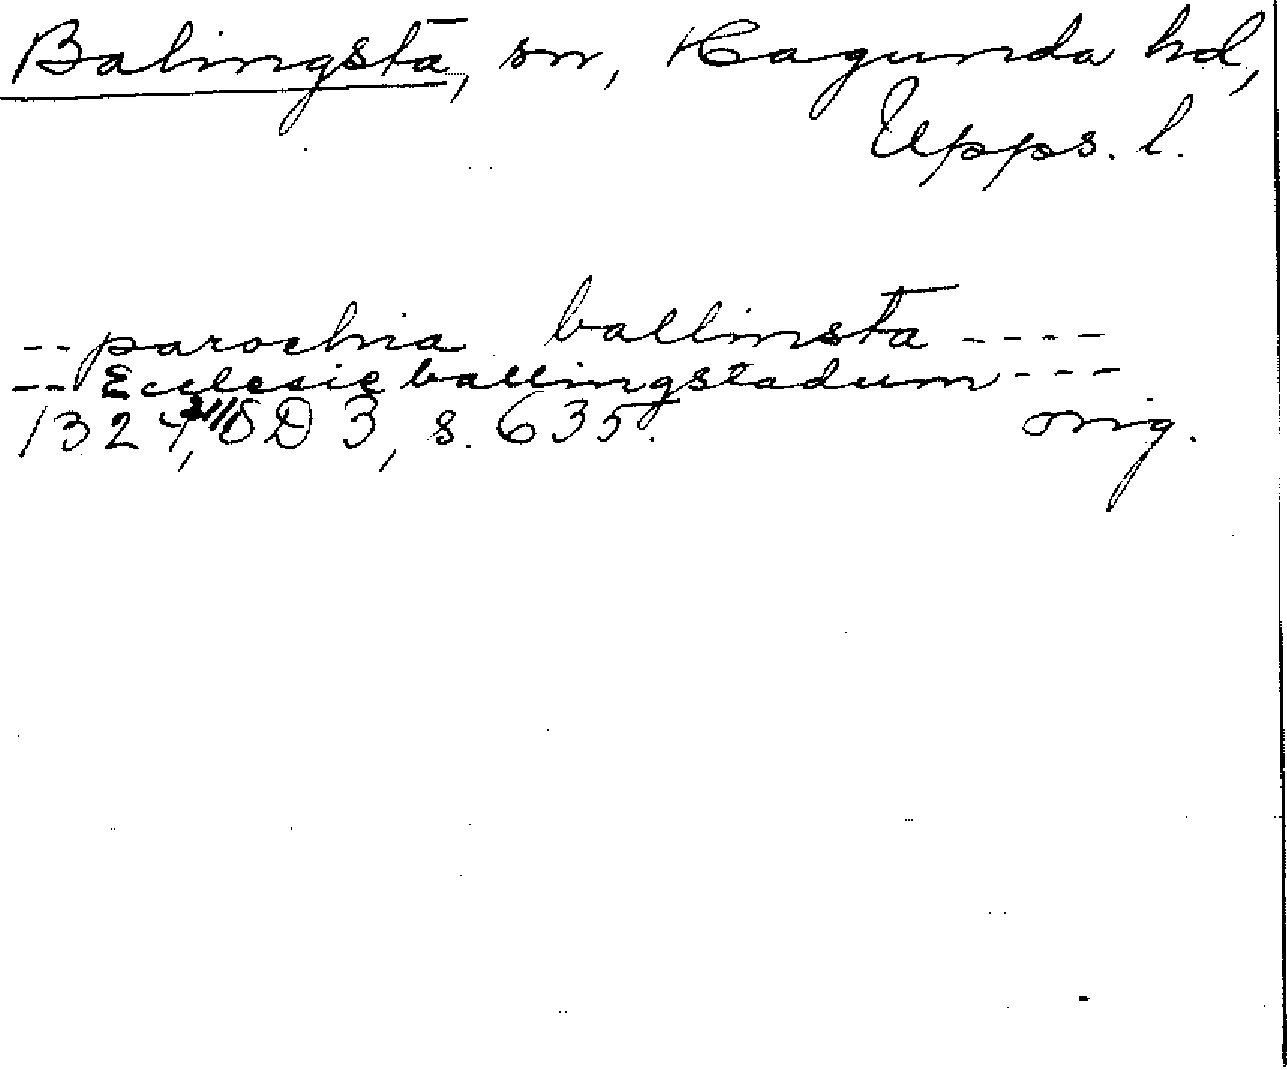 Balingsta, sn, Hagunda hd,
Upps. l.
-- parochia ballinsta ----
-- Ecclesie ballingstadum ---
1324, SD 3, s. 635. orig.